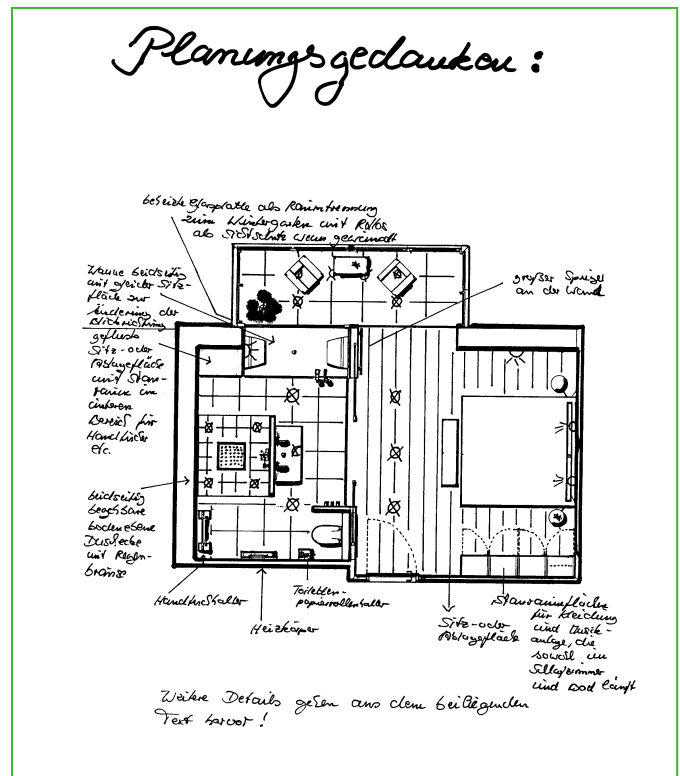 Planungsgedanken:
beheizte Glasplatte als Raumtrennung
zum Wintergarten mit Rollos
als Sichtschutz wenn gewünscht
Wanne beidseitig
mit gleicher Sitz-
fläche zur
Änderung der
Blickrichtung
geflieste
Sitz- oder
Ablagefläche
und Stau-
raum im
unteren
Bereich für
Handtücher
etc.
großer Spiegel
an der Wand
beidseitig
begehbare
bodenebene
Duschecke
mit Regen-
brause
Handtuchhalter
Heizkörper
Toiletten-
papierrollenhalter
Sitz- oder
Ablagefläche
Stauraumfläche
für Kleidung
und Musik-
anlage, die
sowohl im
Schlafzimmer
und Bad läuft
Weitere Details gehen aus dem beiliegenden
Text hervor!